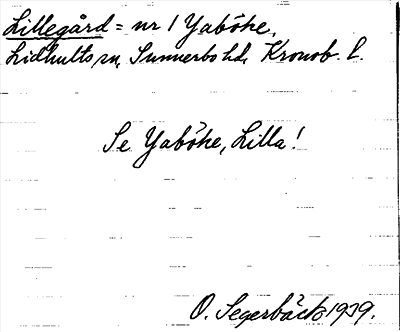 Lillegård = nr 1 Yaböke,
Lidhults sn, Sunnerbo hd, Kronob. l.
Se Yaböke, Lilla!
O. Segerbäck 1919.